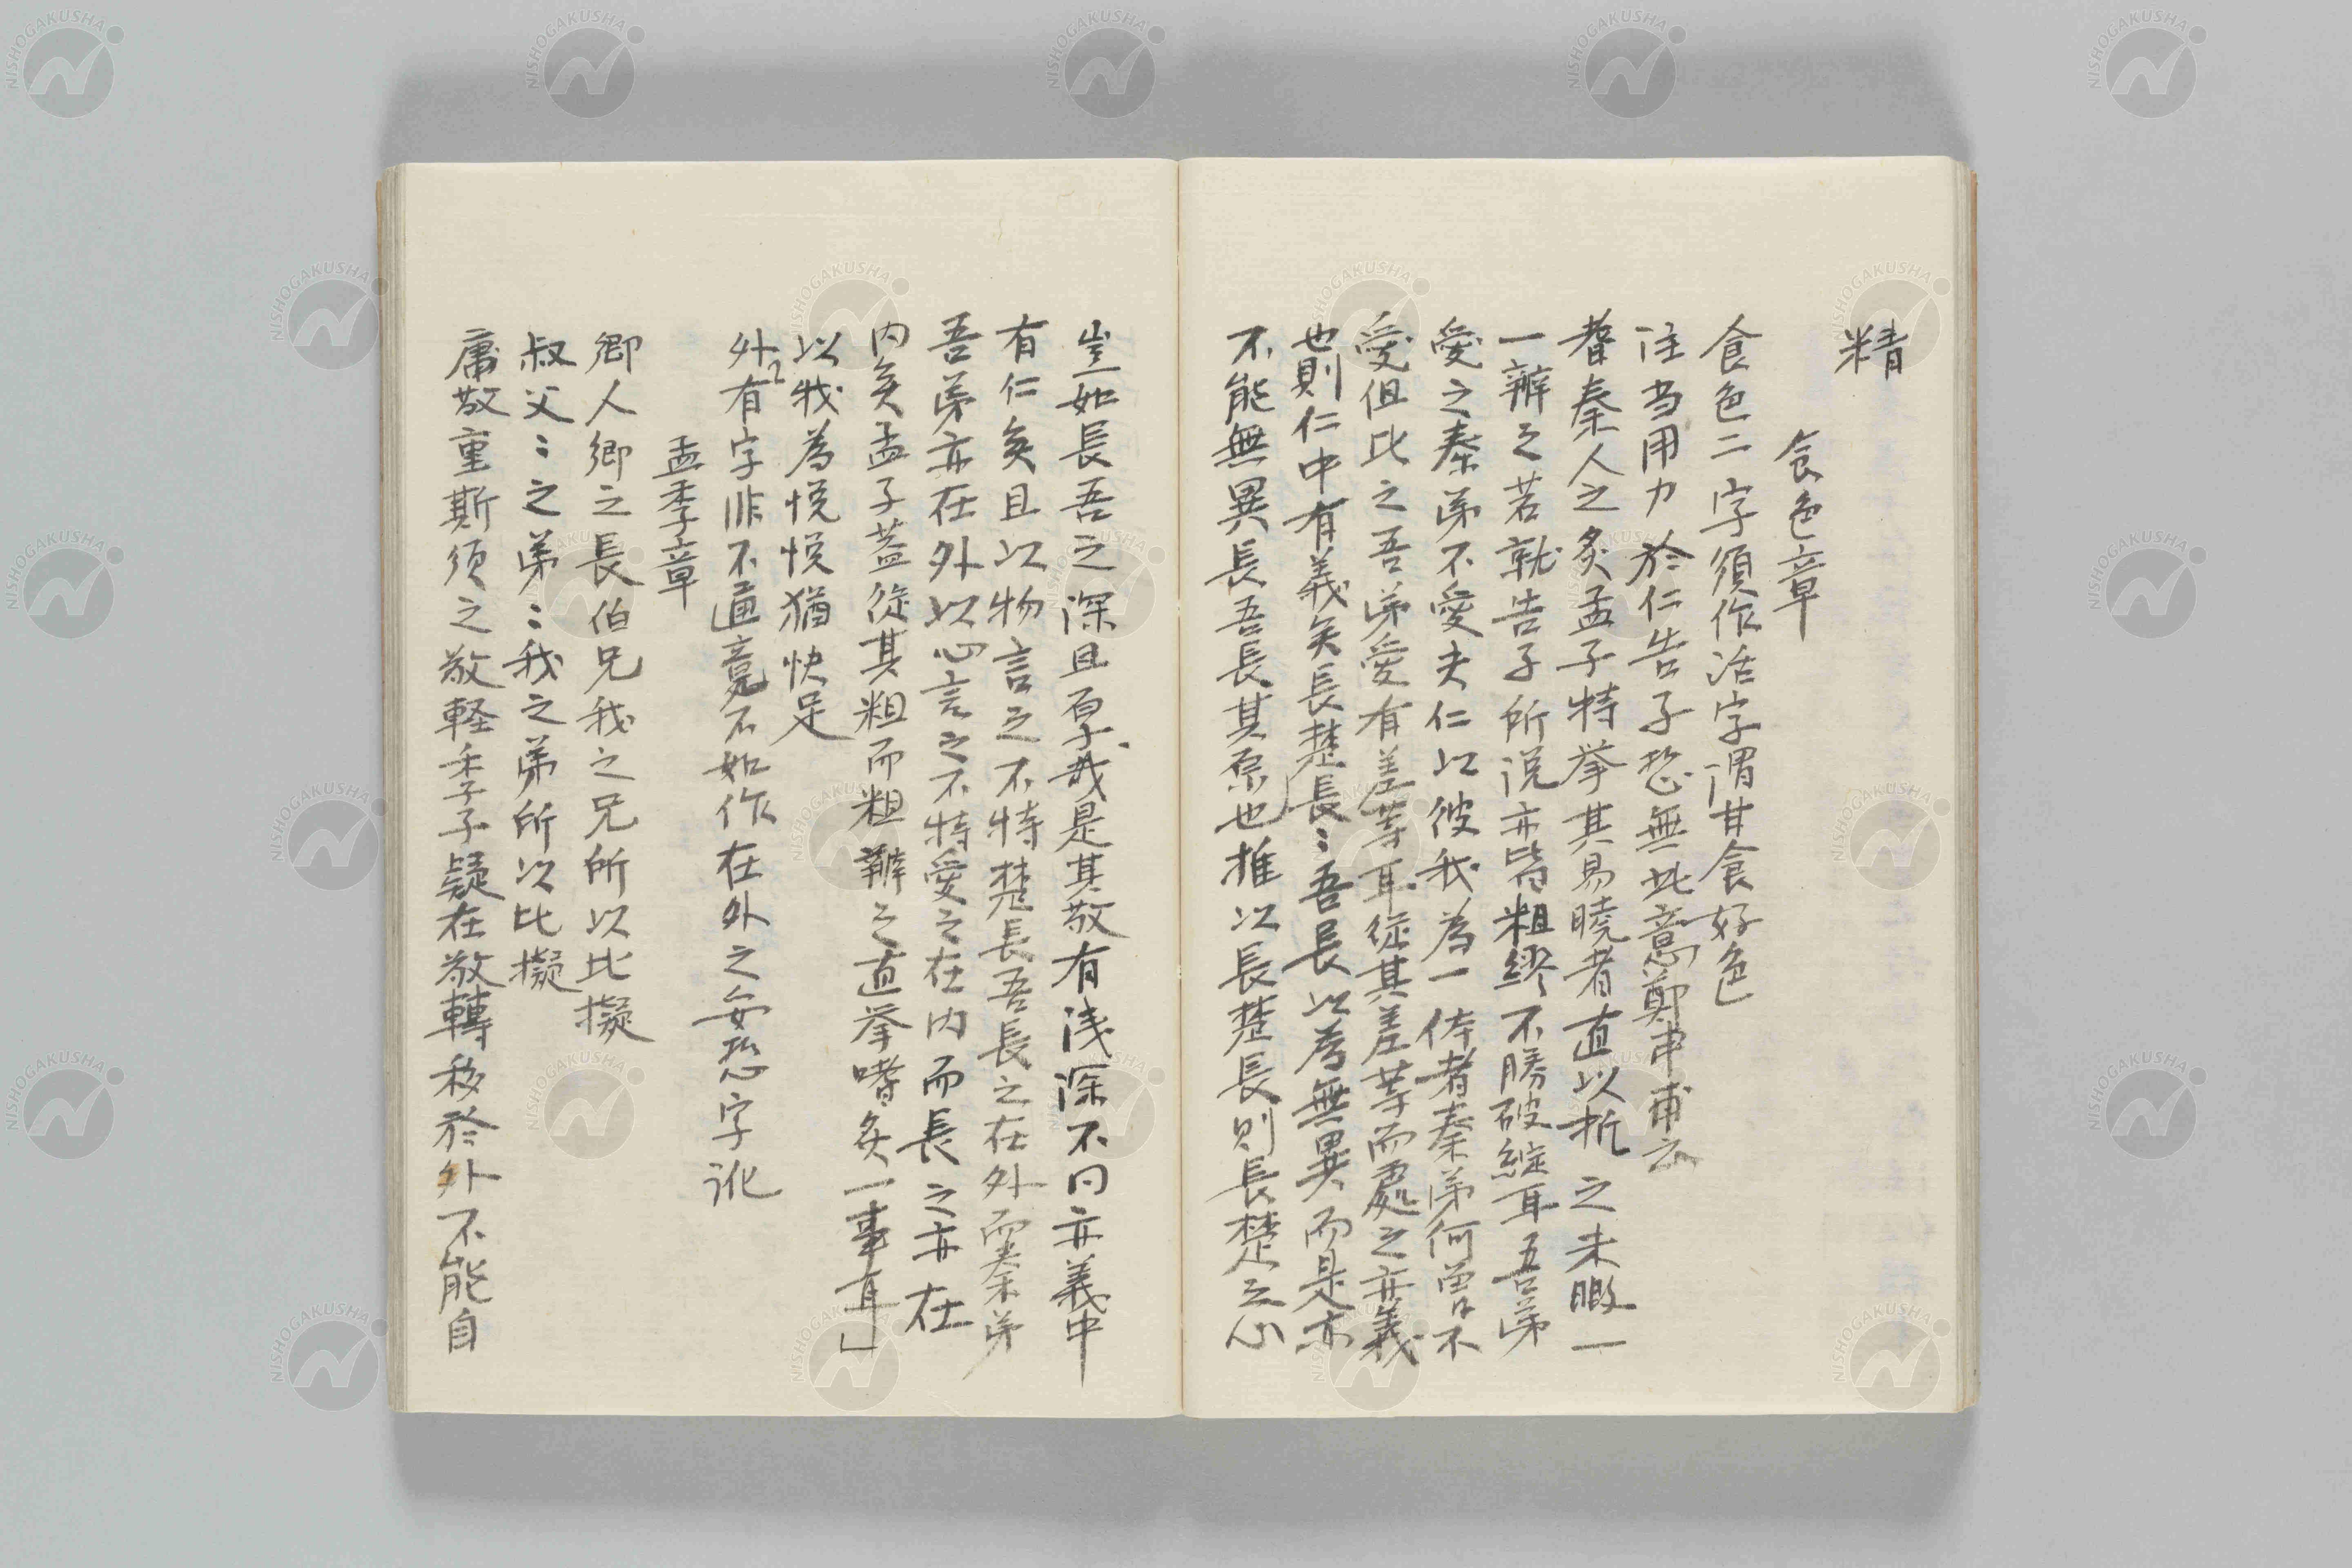 精
食色章
食色二字須作活字謂甘食好色
注当用力於仁告子恐無此意鄭申甫云
耆秦人之炙孟子特挙其易暁者直以折之未暇一
一辨之若就告子所説亦皆粗繆不勝破綻耳吾弟
愛之秦弟不愛夫仁以彼我為一体者秦弟何曽不
愛但比之吾弟愛有差等耳從其差等而處之亦義
也則仁中有義矣長楚長〻吾長以為無異而是亦
不能無異長吾長其原也推以長楚長則長楚之心
豈如長吾之深且厚哉是其敬有浅深不同亦義中
有仁矣且以物言之不特楚長吾長之在外而秦弟
吾弟亦在外以心言之不特愛之在内而長之亦在
内矣孟子蓋從其粗而粗辨之直挙嗜炙一事耳」
以我為悦悦猶快足
外有字非不通竟不如作在外之安恐字訛
孟季章
郷人郷之長伯兄我之兄所以比擬
叔父〻之弟〻我之弟所以比擬
庸敬重斯須之敬軽季子疑在敬轉移於外不能自
NISHOGAKUSHA